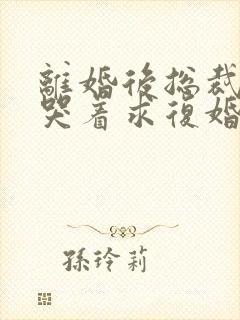 離婚後總裁
哭着求復婚
孫玲莉